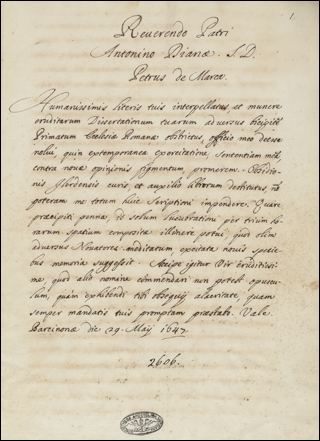 1
Reverendo Patri
Antonino Dianæ. S. D.
Petrus de Marca.
Humanissimis literis tuis interpellatus et munere
eruditarum Dissertationum tuarum adversus bicipitem
Primatum Ecclesiæ Romanæ obstrictus, officio meo deesse
nolui, quin extemporanea exercitatione, Sententiam meā
contra novæ opinionis figmentum, promerem. Obsidio-
nis Ilerdensis curis et auxilio librorum destitutus, nō
poteram me totum huic Scriptioni impendere. Quare
præcipiti penna, id solum lucubratione per trium ho-
rarum spatium composita illinere potui, quod olim
adversus Novatores meditatum excitata novis specie
bus memoria suggessit. Accipe igitur Vir eruditissi
me, quod alio nomine commendari non potest opuscu-
lum, quam exhibendi tibi obsequij alacritate, quam
semper mandatis tuis promptam præstabo. Vale
Barcinonæ die 29. Maij 1647.
2606.